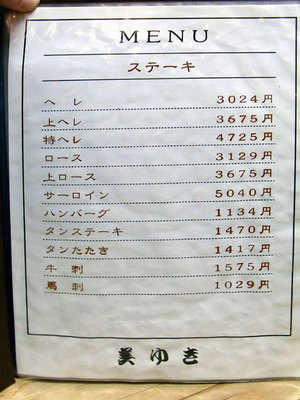 MENU
ステーキ
ヘレ 3024円
上ヘレ 3675円
特ヘレ 4725円
ロース 3129円
上ロース 3675円
サーロイン 5040円
ハンバーグ 1134円
タンステーキ 1470円
タンたたき 1417円
牛刺 1575円
馬刺 1029円
美ゆき